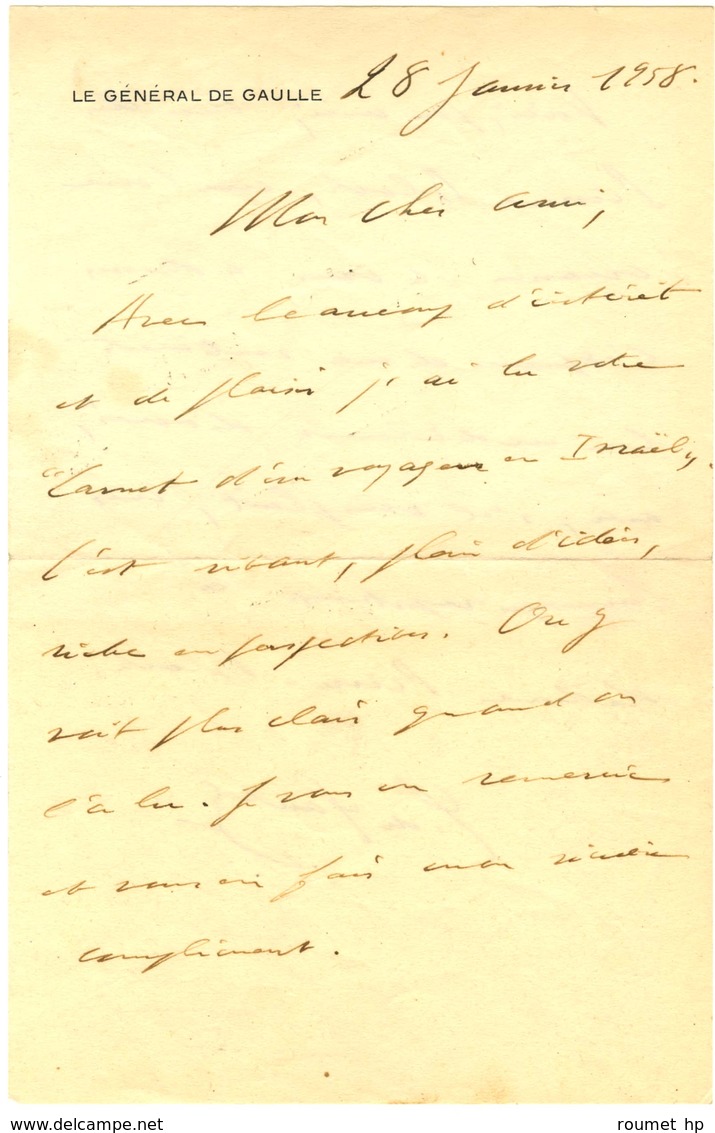 LE GÉNÉRAL DE GAULLE 28 Janvier 1958.
Mon cher ami,
Avec beaucoup d'intérêt
et de plaisir j'ai lu votre
"Carnet d'un voyageur en Israël".
C'est vivant, plein d'idées,
riche en perspectives. On y
voit plus clair quand on
l'a lu. Je vous en remercie
et vous en fais mon sincère
compliment.
www.delcampe.net
roumet hp